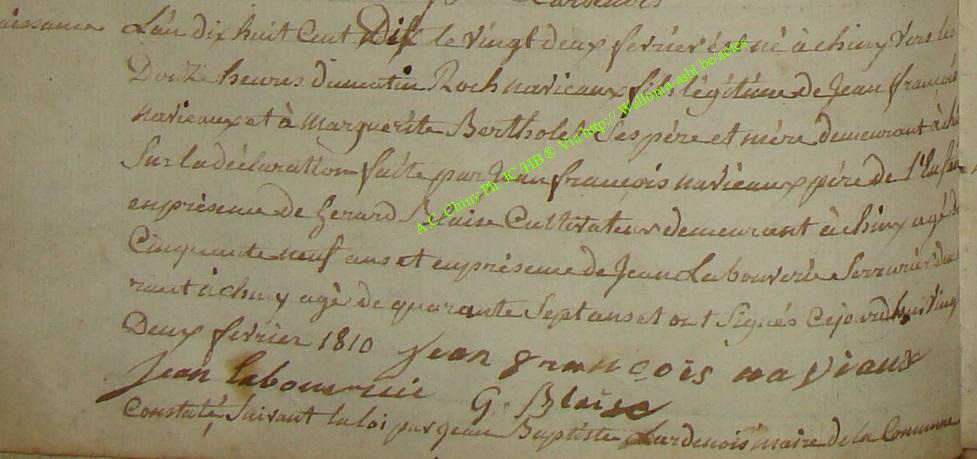 Lardenois
naissance L'án dix huit Cent Dix le vingt deux fevrier ést né à chiny vers les
Douze heures du matin Roch navieaux fils légitime de Jean françois
navieaux et à Marguerite Bertholet Ses père et mère demeurant à chi
Sur la déclaration faite par Jean françois navieaux père de l'Enfan
en présense de Gerard Blaise Cultivateur demeurant à chiny agé de
Cinquante neuf ans et en présense de Jean Labouverie Serrurier deme
rant à chiny agé de quarante Sept ans et ont Signés Cejourd'hui Ving
Deux fevrier 1810 Jean françois navieaux
Jean labouverie G. Blaise
Constaté, Suivant la loi par Jean Baptiste Lardenois maire de la Commune
A.C. Chiny Ph JC/HB® Via http://Wallonia-asbl.be/actes